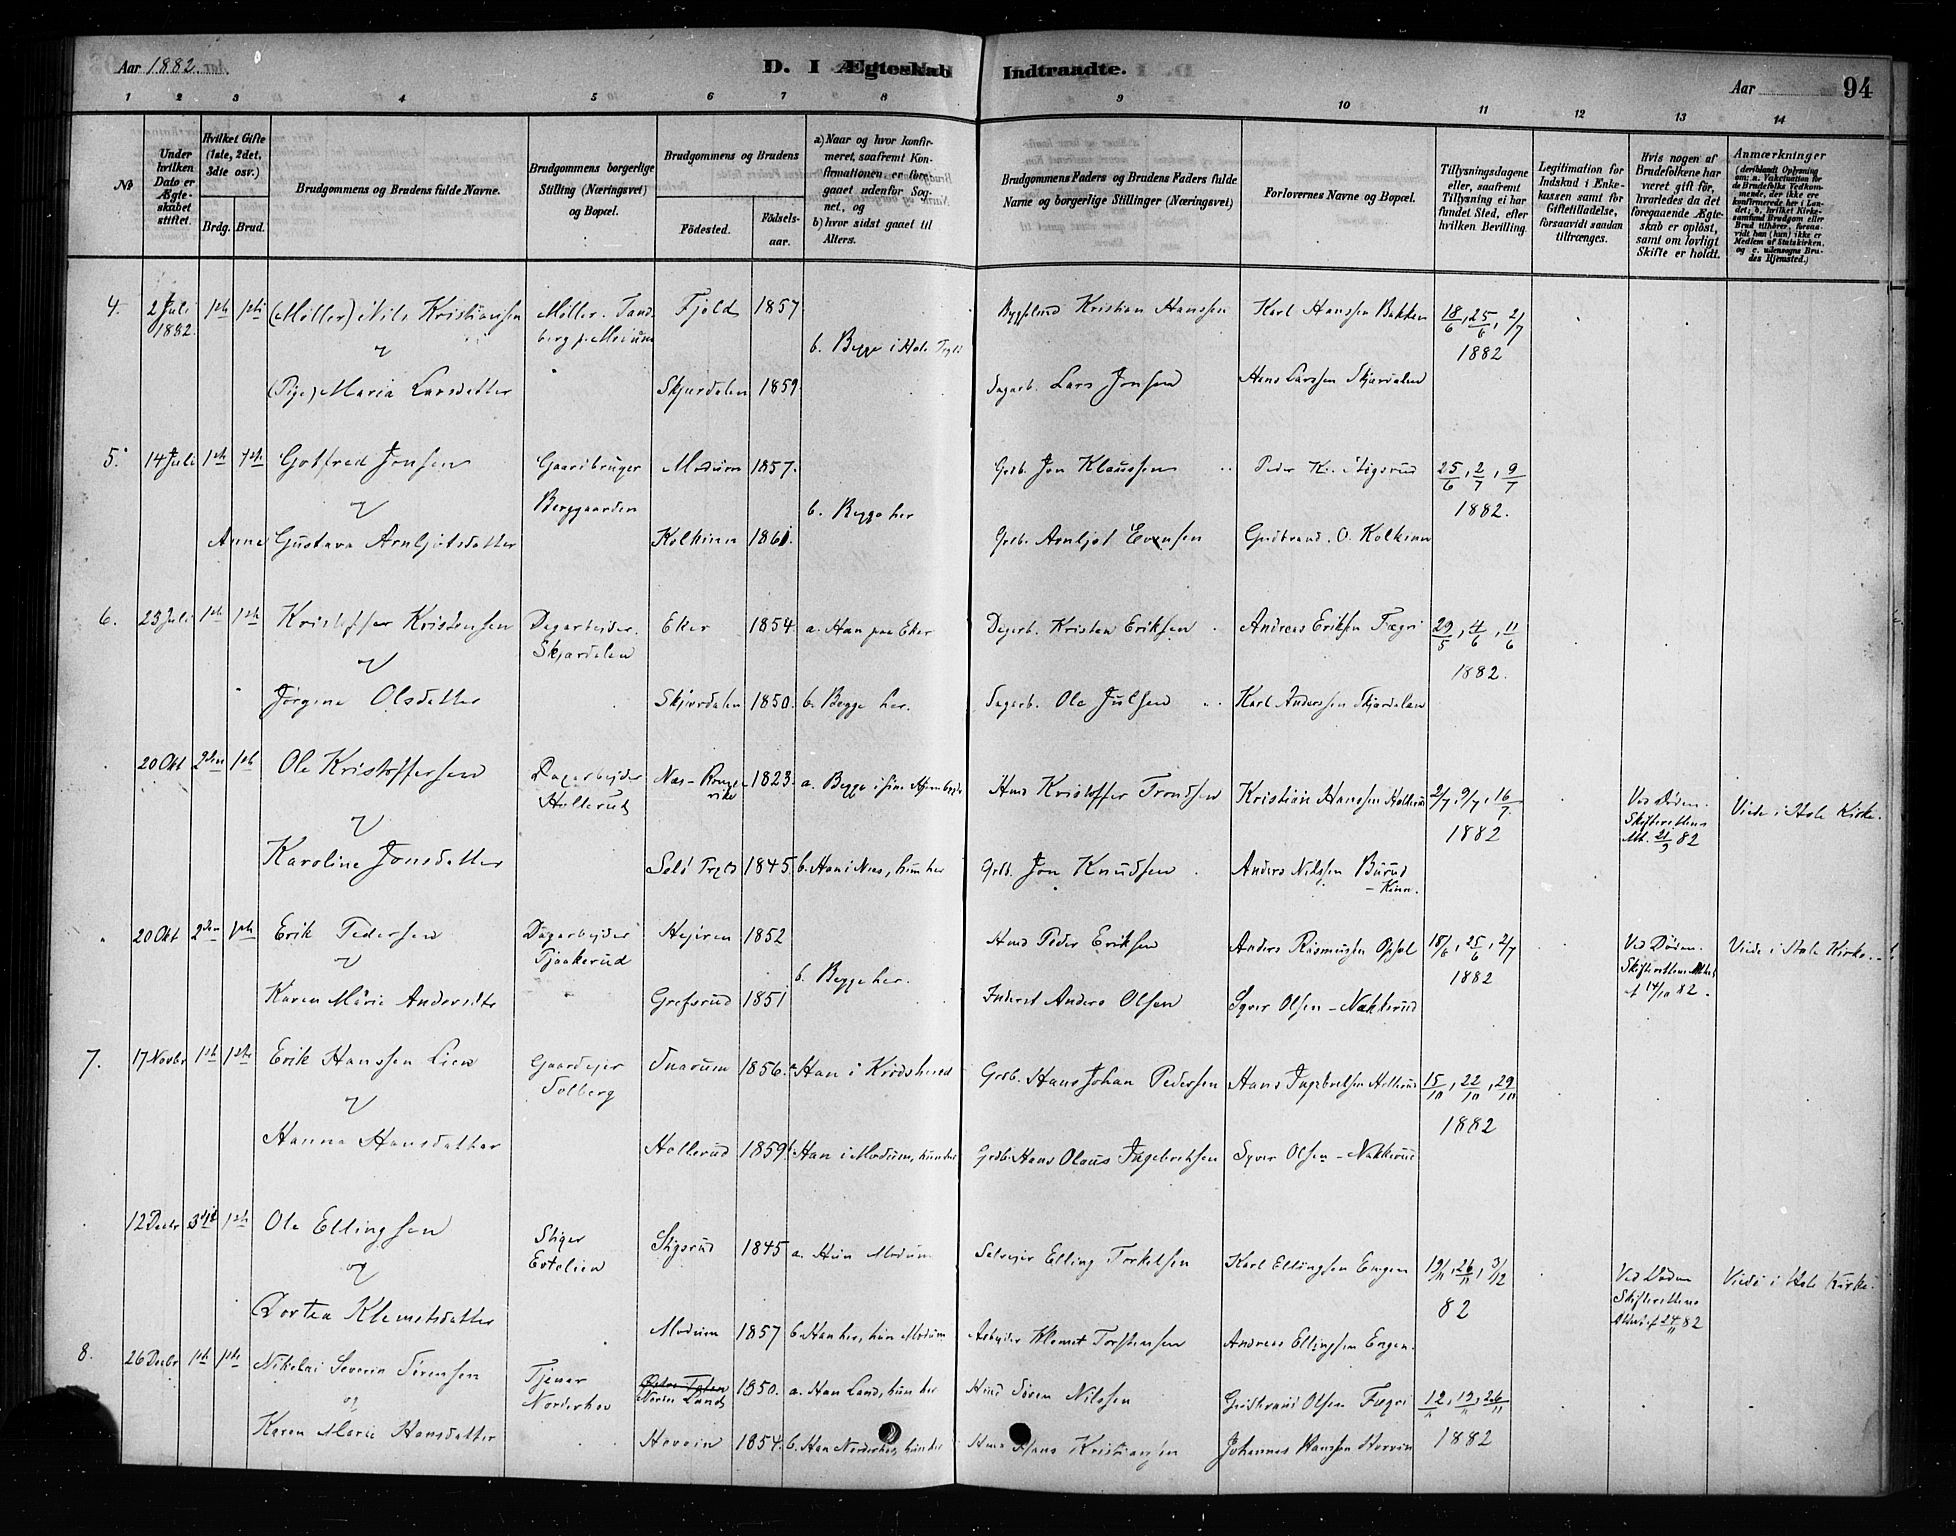 Aar 1882.
D. I Ægteskab Indtraadte.
Aar
94
1 2 3 4 5 6 7 8 9 10 11 12 13 14
No
Under hvilken Dato er Ægteskabet stiftet.
Hvilket Gifte (1ste, 2det, 3die osv.)
Brdg. Brud.
Brudgommens og Brudens fulde Navne.
Brudgommens borgerlige Stilling (Næringsvei) og Bopæl.
Brudgommens og Brudens
Födested.
Födselsaar.
a) Naar og hvor konfirmeret, saafremt Konfirmationen er foregaaet udenfor Sognet, og
b) hvor sidst gaaet til Alters.
Brudgommens Faders og Brudens Faders fulde Navne og borgerlige Stillinger (Næringsvei)
Forlovernes Navne og Bopæl.
Tillysningsdagene eller, saafremt Tillysning ei har fundet Sted, efter hvilken Bevilling.
Legitimation for Indskud i Enkekassen samt for Giftetilladelse, forsaavidt saadan tiltrænges.
Hvis nogen af Brudefolkene har været gift för, hvorledes da det foregaaende Ægteskab er oplöst, samt om lovligt Skifte er holdt.
Anmærkninger (deriblandt Oplysning om: a. Vakcination for de Brudefolks Vedkommende, der ikke ere konfirmerede her i Landet; b. hvilket Kirkesamfund Brudgom eller Brud tilhörer, forsaavidt han (hun) ikke er Medlem af Statskirken, og c. udensogns Brudes Hjemsted.)
4. 2 Juli 1882 1ste 1ste (Møller) Nils Kristiansen Møller. Tandberg p. Modum Fjeld 1857 Kristian Hanssen Karl Hanssen Bakken 18/6, 25/6, 2/7 1882
og
b. Begge i Hole
(Pige) Maria Larsdatter Skjærdalen 1859 Dagarb. Lars Jonsen Hans Larssen Skjærdalen
5. 14 Juli 1ste 1ste Gotfred Jonsen Gaardbruger Berggaarden Modum 1857. Grdb. Jon Klaussen Peder Kr. Stigsrud 25/6, 2/7, 9/7 1882.
og
b. Begge her
Anne Gustava Arnljotsdatter Kolkinn 1861. Grdb. Arnljot Evensen Gudbrand O. Kolkinn
6. 23 Juli 1ste 1ste Kristoffer Kristensen Dagarbejder. Skjærdalen Eker 1854 a. Han paa Eker Dagarb. Kristen Eriksen Andreas Eriksen Fægri 29/5, 4/6, 11/6 1882.
og
Jørgine Olsdatter Skjærdalen 1850. b. Begge her. Dagarb. Ole Julsen Karl Anderssen Skjærdalen
20 Okt 2den 1ste Ole Kristoffersen Dagarbejder Hollerud Næs - Ringerike 1823. a. Begge i sine Hjembygder Hmd Kristoffer Trondsen Kristian Hanssen Hollerud 2/7, 9/7, 16/7 1882 Ved Døden. Skifterettens Att. 21/9 82 Viede i Hole Kirke.
og
Karoline Jonsdatter 1845. b. Han i Næs, hun her Grdb. Jon Knudsen Anders Nilssen Burud - Kinn.
20 Okt 2den 1ste Erik Pedersen Dagarbejder Tjaakerud Hejeren 1852 Hmd Peder Eriksen Anders Rasmussen Opsal 18/6, 25/6, 2/7 1882 Ved Døden. Skifterettens Attest af 14/10 82. Viede i Hole Kirke.
og
b. Begge her.
Karen Marie Andersdtr Grefsrud 1851 Inderst Anders Olsen Syver Olsen - Nakkerud
7. 17 Novbr 1ste 1ste Erik Hanssen Lien Gaardejer Solberg Snarum 1856. a. Han i Krødsherred Grdb. Hans Johan Pedersen Hans Ingebretsen Hollerud 15/10, 22/10, 29/10 1882
og
Hanna Hansdatter Hollerud 1859 b. Han i Modum, hun her Grdb. Hans Olaus Ingebretsen Syver Olsen - Nakkerud
12 Decbr 3die 1ste Ole Ellingsen Stiger Evtelien Stigsrud 1845 a. Hun Modum Selvejer Elling Torkelsen Karl Ellingsen Engen 19/11, 26/11, 3/12 82 Ved Døden Skifterettens Attest af 24/11 82 Viede i Hole Kirke.
og
Dortea Klemetsdatter Modum 1857 b. Han her, hun Modum Arbejder Klemet Torstensen Andreas Ellingsen Engen.
8. 26 Decbr 1ste 1ste Nikolai Severin Sørensen Tjener Norderhov Nordre Land 1850. a. Han Land, hun her Hmd Søren Nilssen Gudbrand Olsen Fægri 12/11, 19/11, 26/11 1882
og
Karen Marie Hansdatter Hovein 1854. b. Han Norderhov, hun her Hmd Hans Kristiansen Johannes Hanssen Hovein